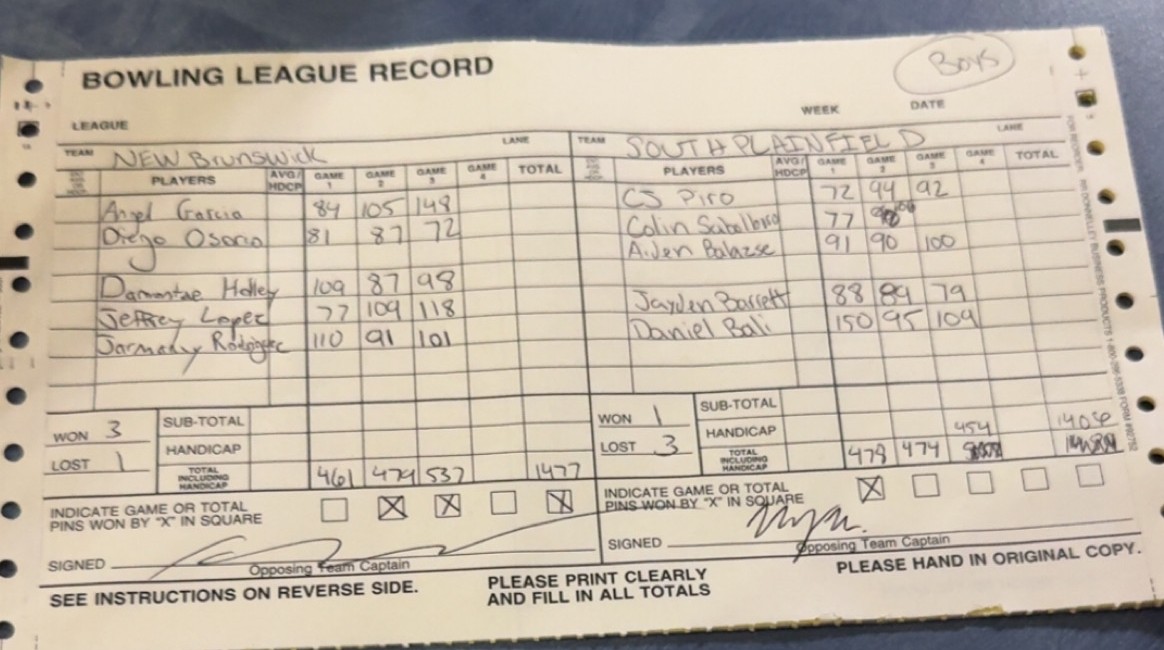 BOWLING LEAGUE RECORD
Boys
LEAGUE WEEK DATE
TEAM NEW Brunswick LANE
PLAYERS AVG/HDCP GAME 1 GAME 2 GAME 3 GAME 4 TOTAL
Angel Garcia 84 105 148
Diego Osorio 81 87 72
Damontae Holley 109 87 98
Jeffrey Lopez 77 109 118
Rodriguez 110 91 101
WON 3
LOST 1
SUB-TOTAL
HANDICAP
TOTAL INCLUDING HANDICAP 461 479 537 1477
INDICATE GAME OR TOTAL
PINS WON BY "X" IN SQUARE X X X
SIGNED
Opposing Team Captain
TEAM SOUTH PLAINFIELD LANE
PLAYERS AVG/HDCP GAME 1 GAME 2 GAME 3 GAME 4 TOTAL
CJ Piro 72 94 92
Colin 77
Aiden Balazse 91 90 100
Jayden Barrett 88 89 79
Daniel Bali 150 95 109
WON 1
LOST 3
SUB-TOTAL
HANDICAP 454 1406
TOTAL INCLUDING HANDICAP 478 474
INDICATE GAME OR TOTAL
PINS WON BY "X" IN SQUARE X
SIGNED
Opposing Team Captain
SEE INSTRUCTIONS ON REVERSE SIDE.
PLEASE PRINT CLEARLY
AND FILL IN ALL TOTALS
PLEASE HAND IN ORIGINAL COPY.